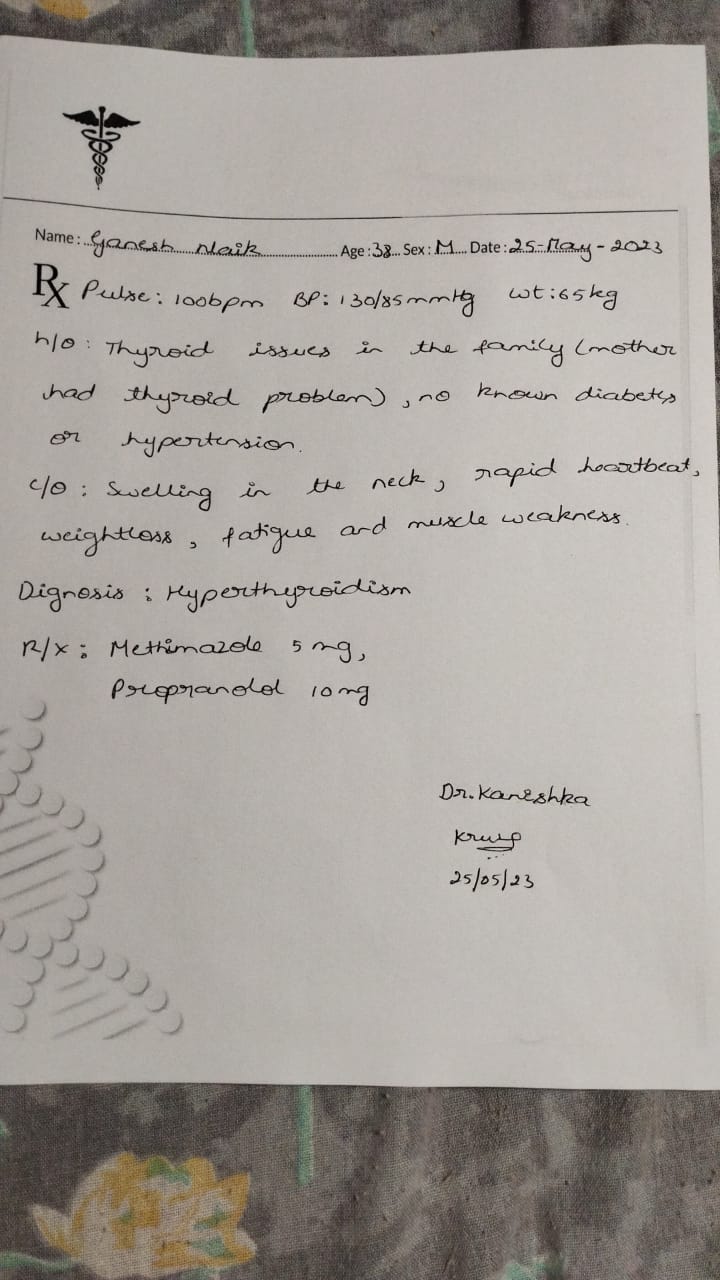 Name: Ganesh Naik Age: 38 Sex: M Date: 25-May-2023
Rx Pulse: 100bpm BP: 130/85mmHg wt: 65kg
h/o: Thyroid issues in the family (mother
had thyroid problem), no known diabetes
or hypertension.
c/o: Swelling in the neck, rapid heartbeat,
weightloss, fatigue and muscle weakness.
Dignosis: Hyperthyroidism
R/x: Methimazole 5 mg,
Propranolol 10 mg
Dr. Kaneshka
25/05/23